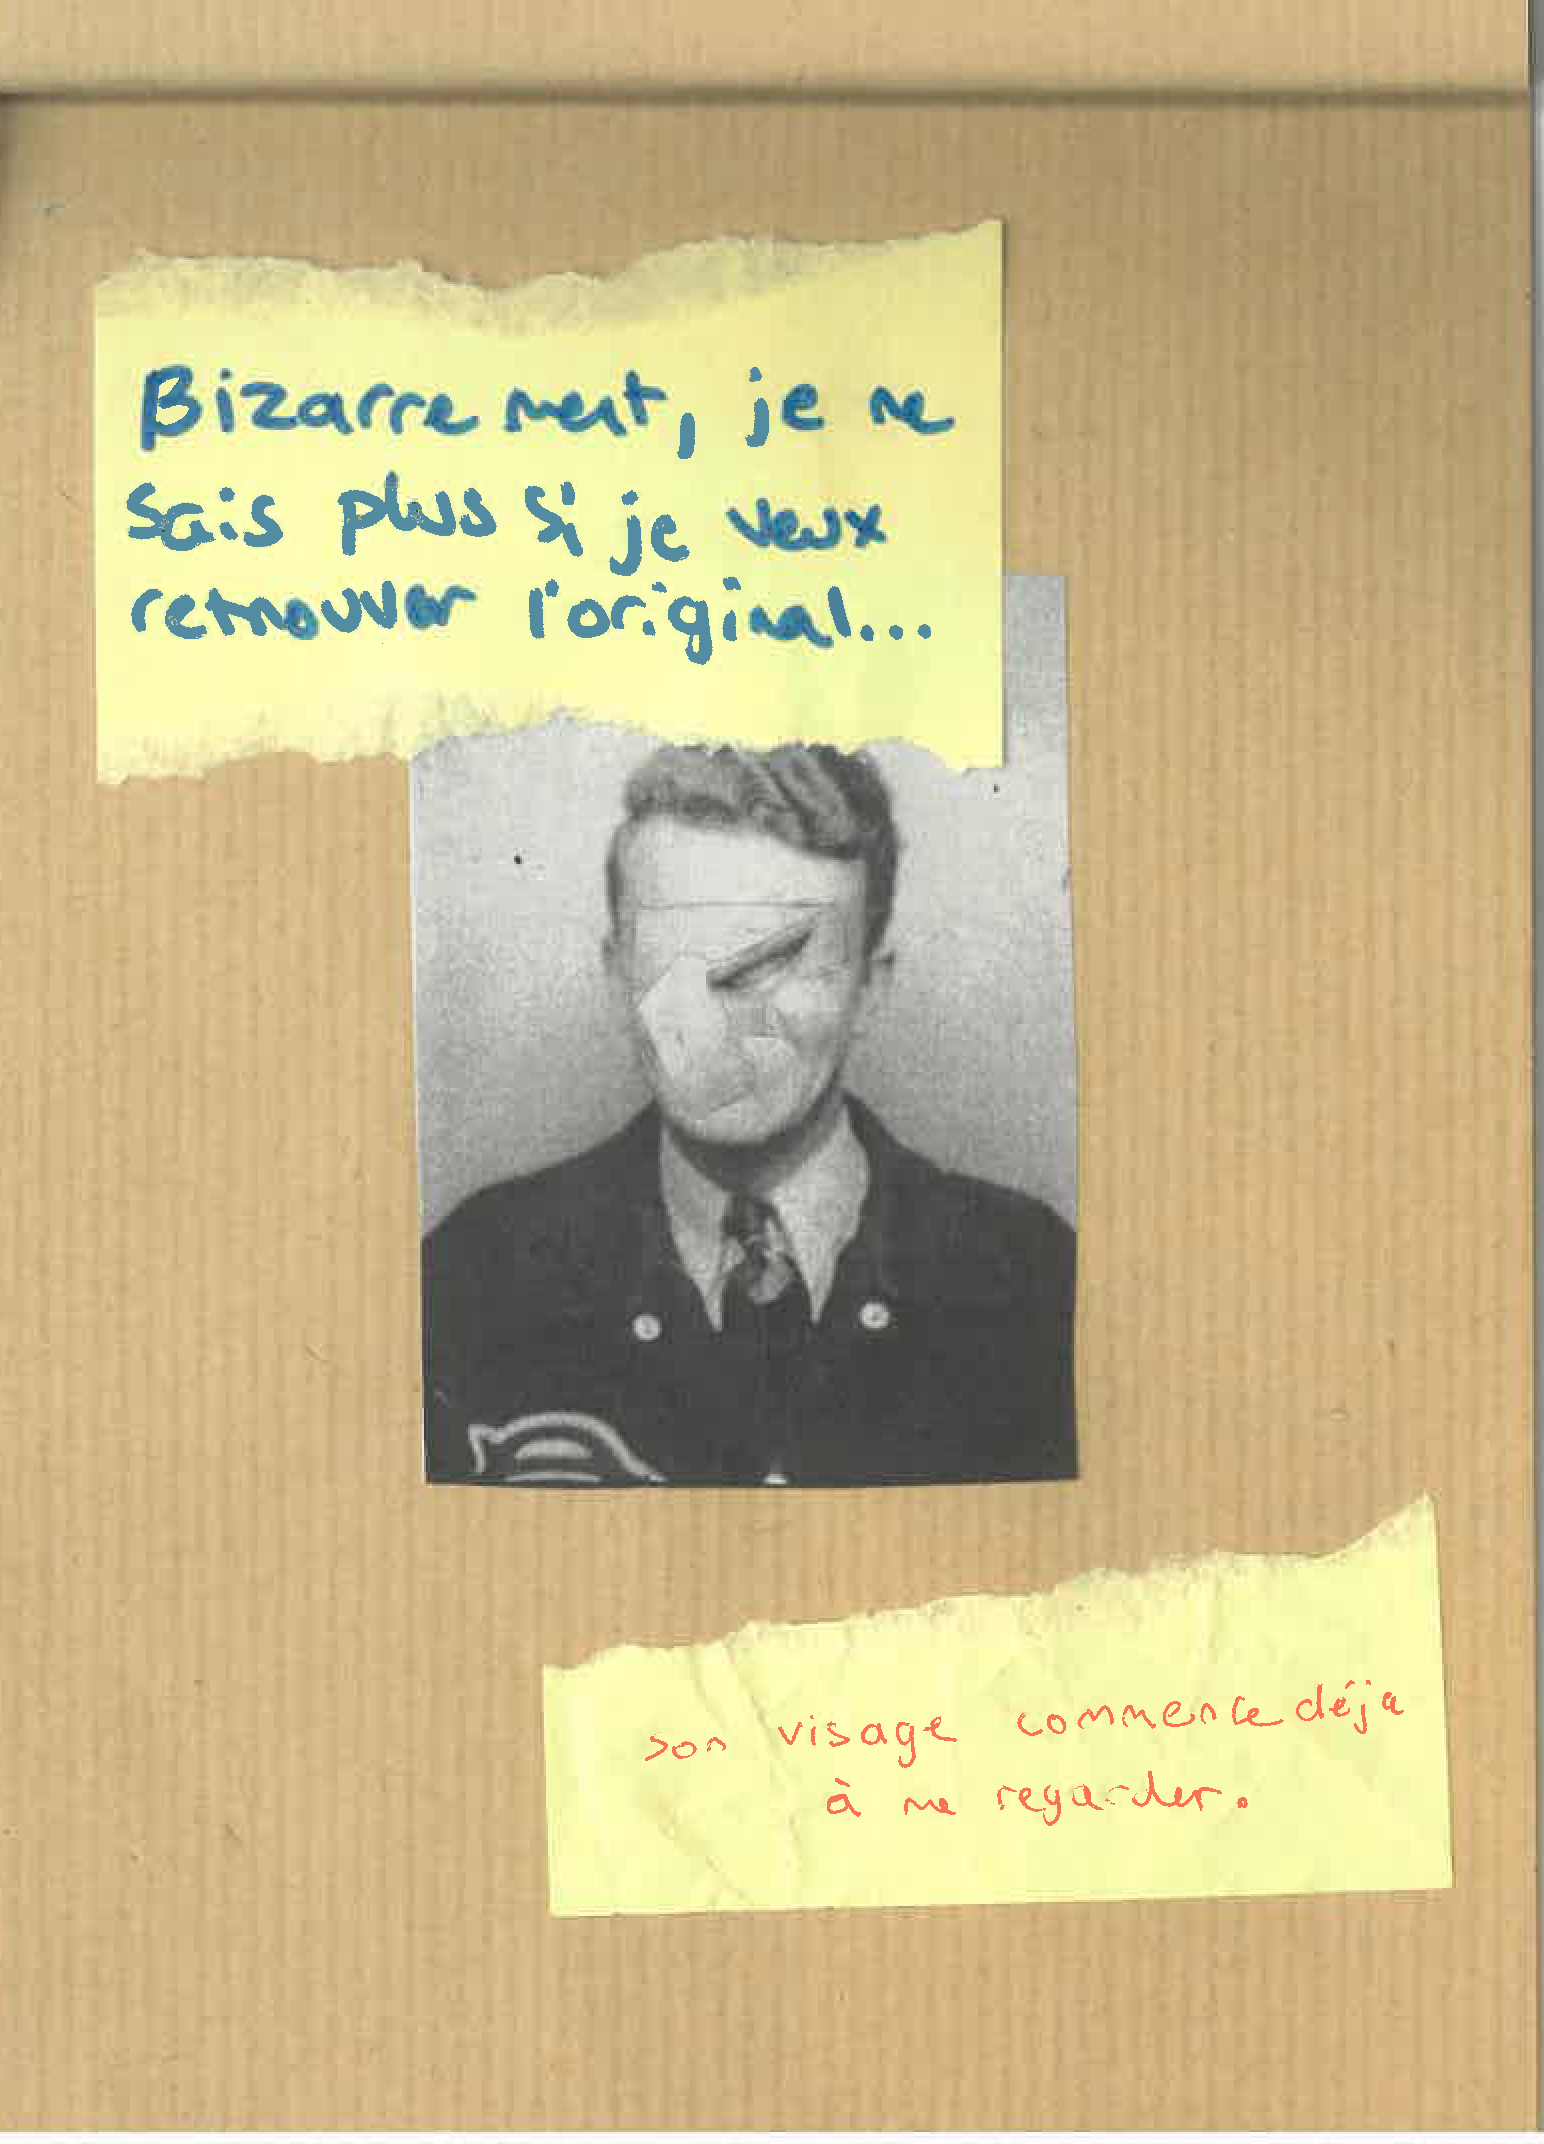 Bizarrement, je ne
sais plus si je veux
retrouver l'original...
son visage commence déjà
à me regarder.